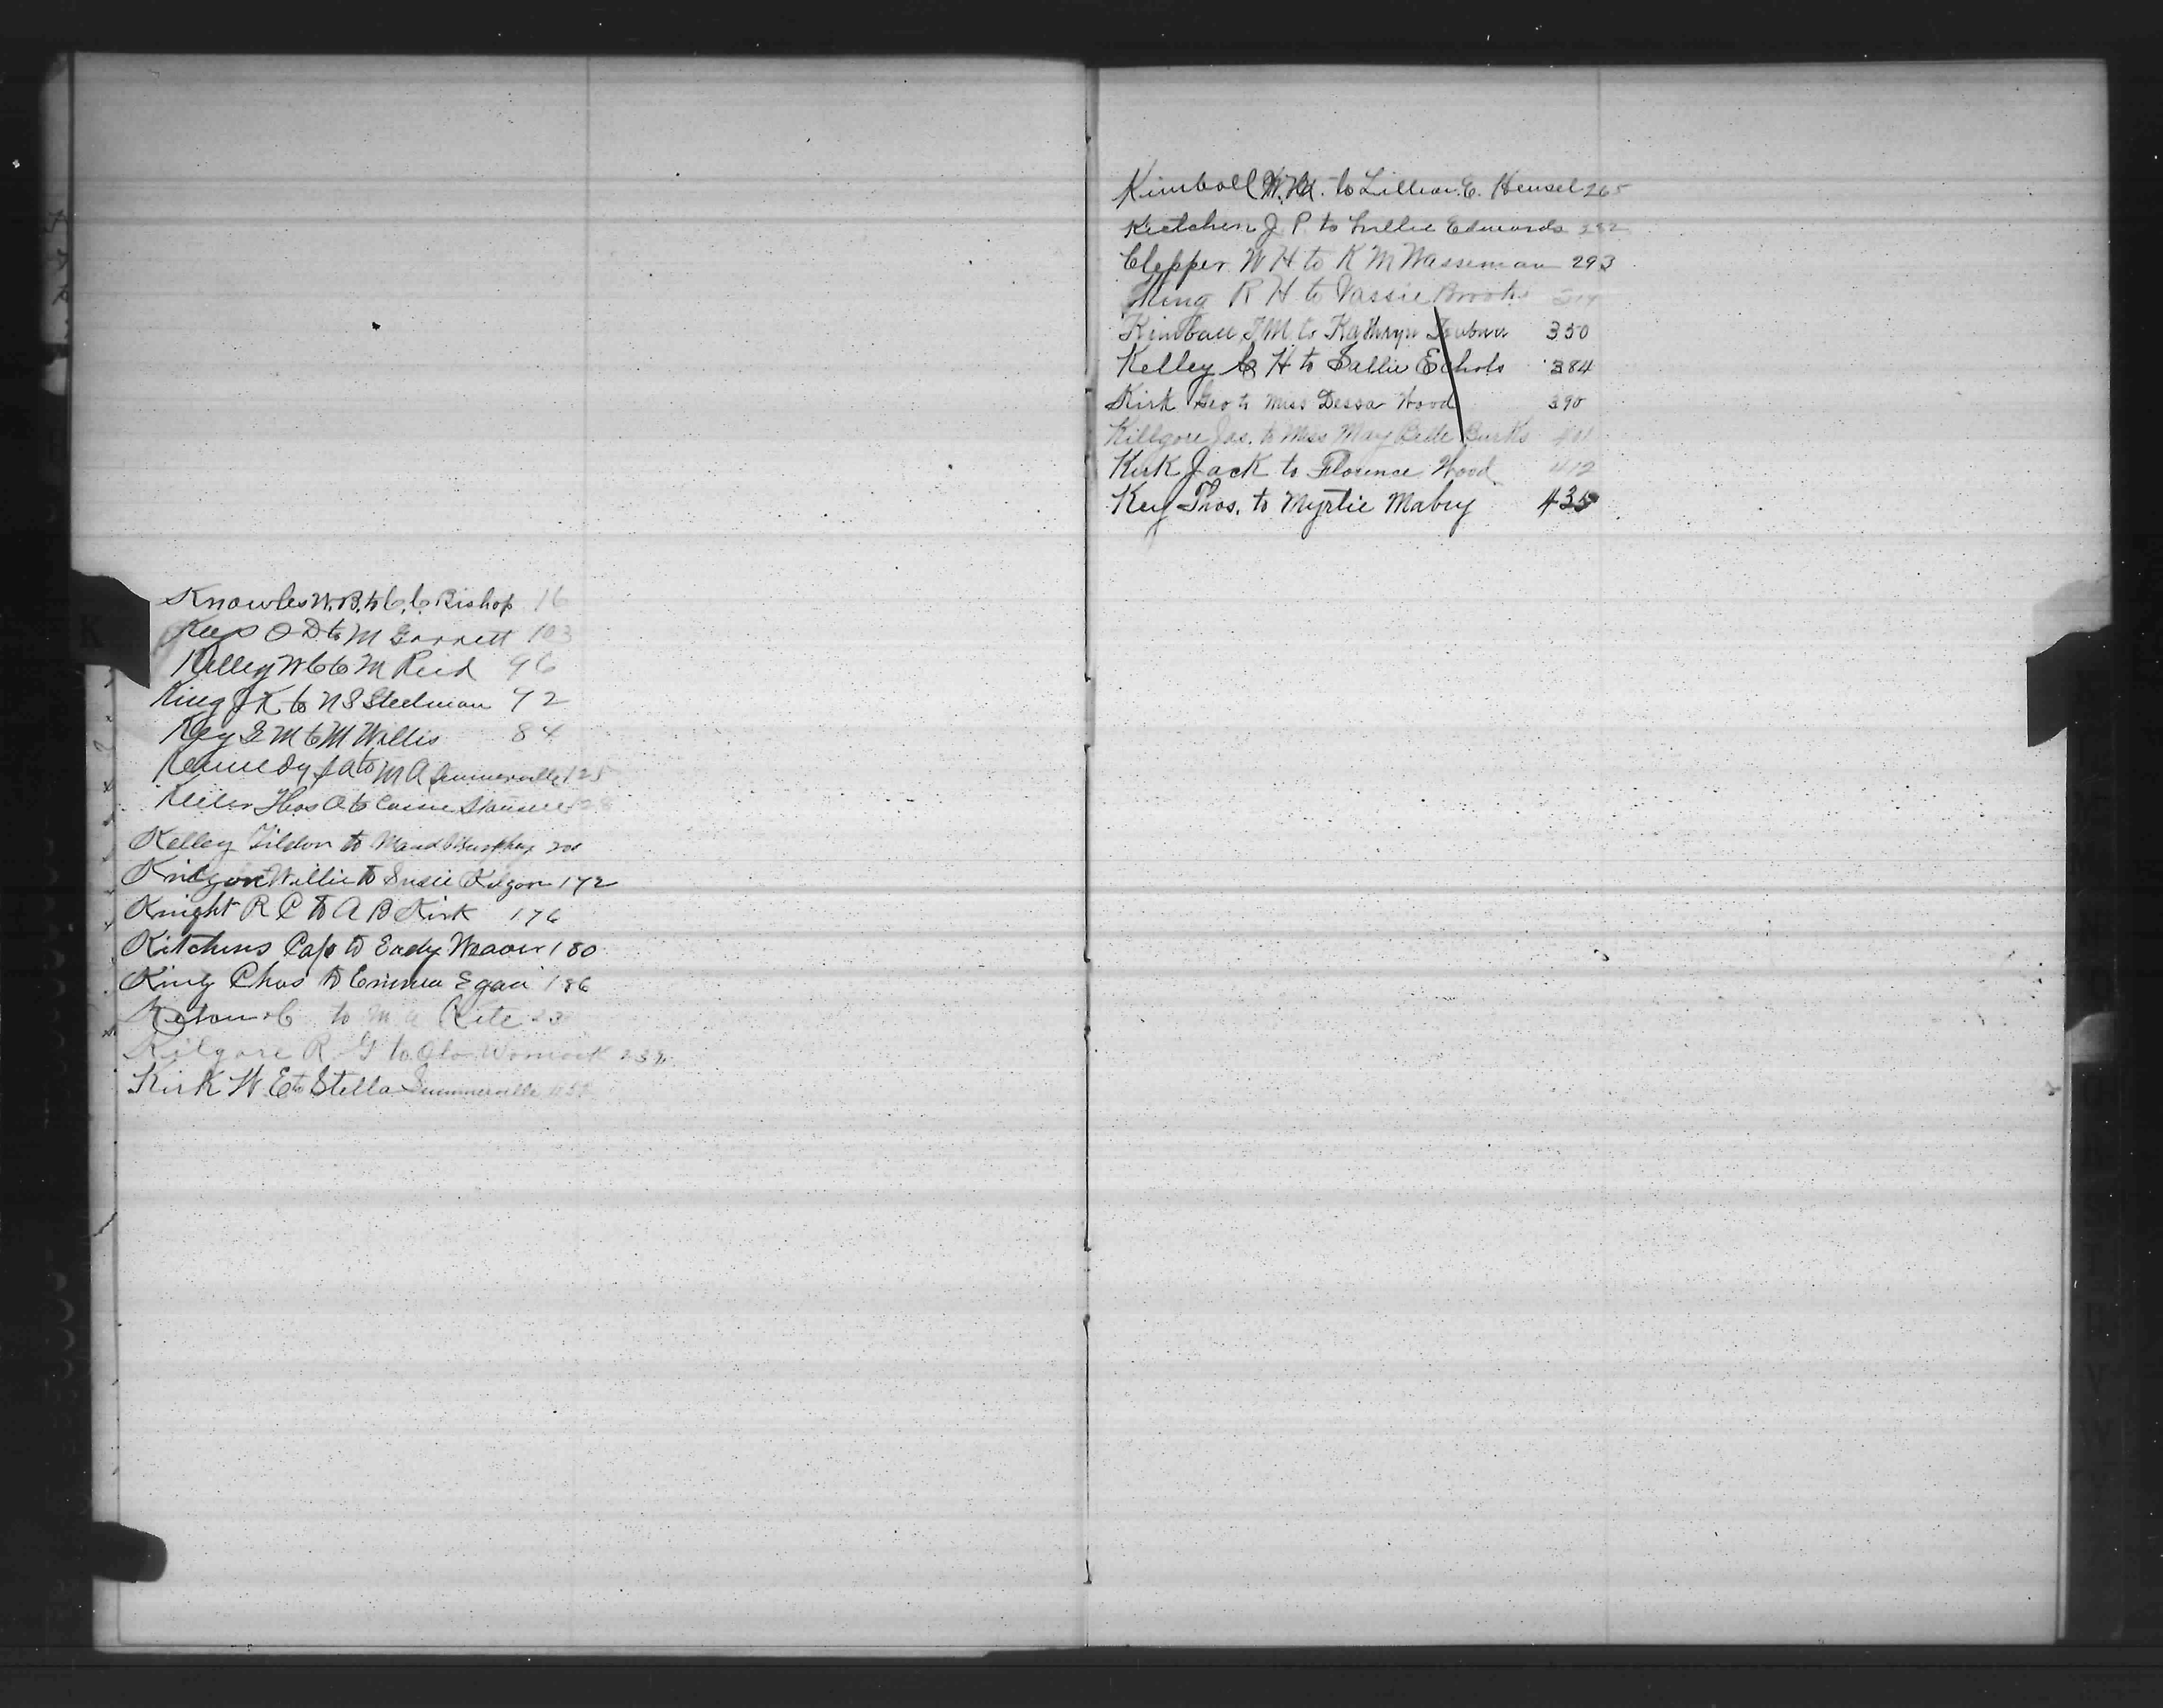 K
Knowles W. B. to C. C. Bishop 16
Keys O D to M Garrett 103
Kelley W C to M Reid 96
King J K to N S Steelman 72
Key G M to M Willis 84
Kennedy J A to M A Summerville 125
Thos A to
Kelley Tildon to Maud
Willie to Susie Kilgore 172
Knight R C to A B Kirk 176
Kitchens Cap to Eady Weaver 180
King Chas to Emma Egan 186
to M Kite
Kilgore R G to Womack
Kirk W E to Stella Summerville
Kimball to Lillian E. Hensel 265
J P to Edwards
Clepper W H to K M Wasseman 293
King R H to Vassie Brooks
Kimball J M to Kathryn 350
Kelley C H to Sallie Echols 384
Kirk Geo to Miss Dessa Wood 390
Killgore Jas. to Miss May Belle Burks 401
Kirk Jack to Florence Wood 412
Key Thos. to Myrtie Mabry 435